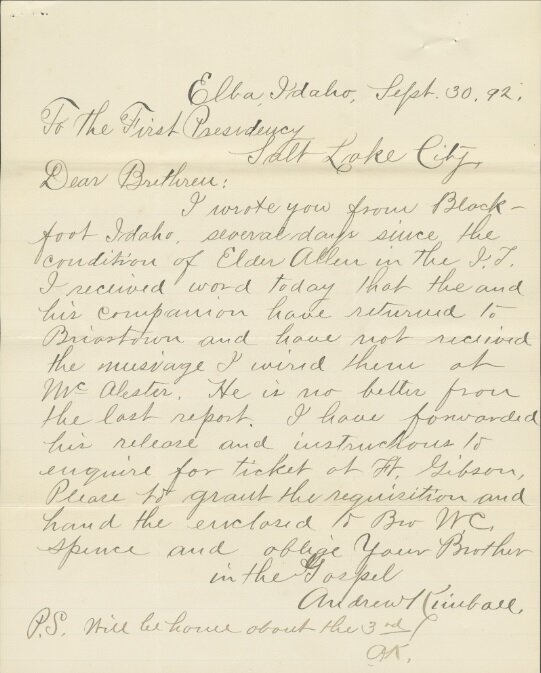 Elba, Idaho, Sept. 30, 92.
To the First Presidency
Salt Lake City,
Dear Brethren:
I wrote you from Black-
foot Idaho, several days since the
condition of Elder Allen in the I.T.
I received word today that the and
his companion have returned to
Briartown and have not received
the message I wired them at
Mc Alester. He is no better from
the last report. I have forwarded
his release and instructions to
enquire for ticket at Ft. Gibson,
Please to grant the requisition and
hand the enclosed to Bro W.C.
Spence and oblige Your Brother
in the Gospel
Andrew Kimball.
P.S. Will be home about the 3rd
A.K.